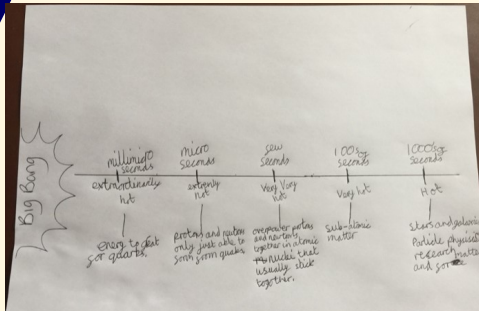 Big Bang
millimicro
seconds
extraordinarily
hot
energy to great
for quarks.
micro
seconds
extremly
hot
protons and neutrons
only just able to
form from quarks
few
seconds
Very Very
hot
overpower protons
and neutrons
together in atomic
nuclei that
usually stick
together.
100s of
seconds
Very hot
sub-atomic
matter
1000s of
seconds
Hot
stars and galaxies
Particle physicists
research matter
and force